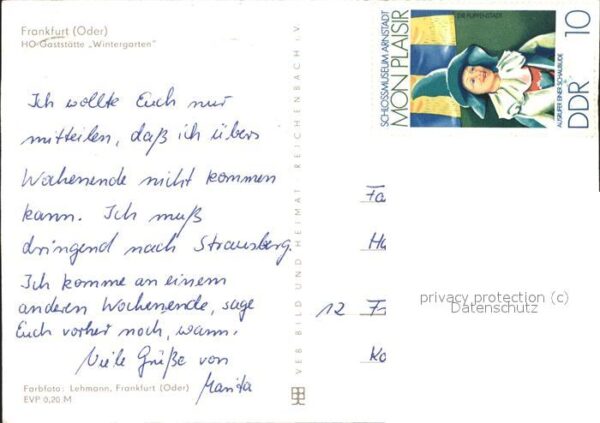 Frankfurt (Oder)
HO-Gaststätte „Wintergarten"
Ich wollte Euch nur
mitteilen, daß ich übers
Wochenende nicht kommen
kann. Ich muß
dringend nach Strausberg.
Ich komme an einem
anderen Wochenende, sage
Euch vorher noch, wann.
Viele Grüße von
Marita
Farbfoto: Lehmann, Frankfurt (Oder)
EVP 0,20 M
VEB BILD UND HEIMAT REICHENBACH I. V.
SCHLOSSMUSEUM ARNSTADT
MON PLAISIR
DIE PUPPENSTADT
AUSRUFER EINER SCHAUBUDE
DDR 10
Fa
Hu
12 Fr
Ko
privacy protection (c)
Datenschutz